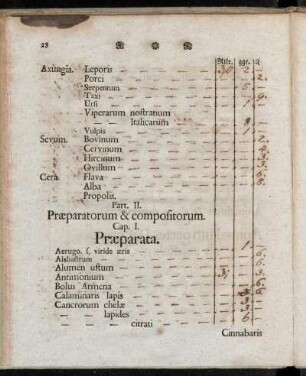 28
Rthlr. ggr. ₰
Axungia. Leporis — 30 2.
Porci — 2.
Serpentum — 6
Taxi — 1 9.
Ursi
Viperarum nostratum
— Italicarum — 8
Vulpis — 1
Sevum. Bovinum — 2.
Cervinum — 4.
Hircinum — 3.
Ovillum — 3.
Cera Flava — 6.
Alba — 8.
Propolis.
Part. II.
Præparatorum & compositorum.
Cap. I.
Præparata.
Aerugo. s. viride æris — 1
Alabastrum — 6.
Alumen ustum — 6.
Antimonium — 3.
Bolus Armena — 6.
Calaminaris lapis
Cancrorum chelæ — 3
— lapides — 6
— — citrati
Cinnabaris